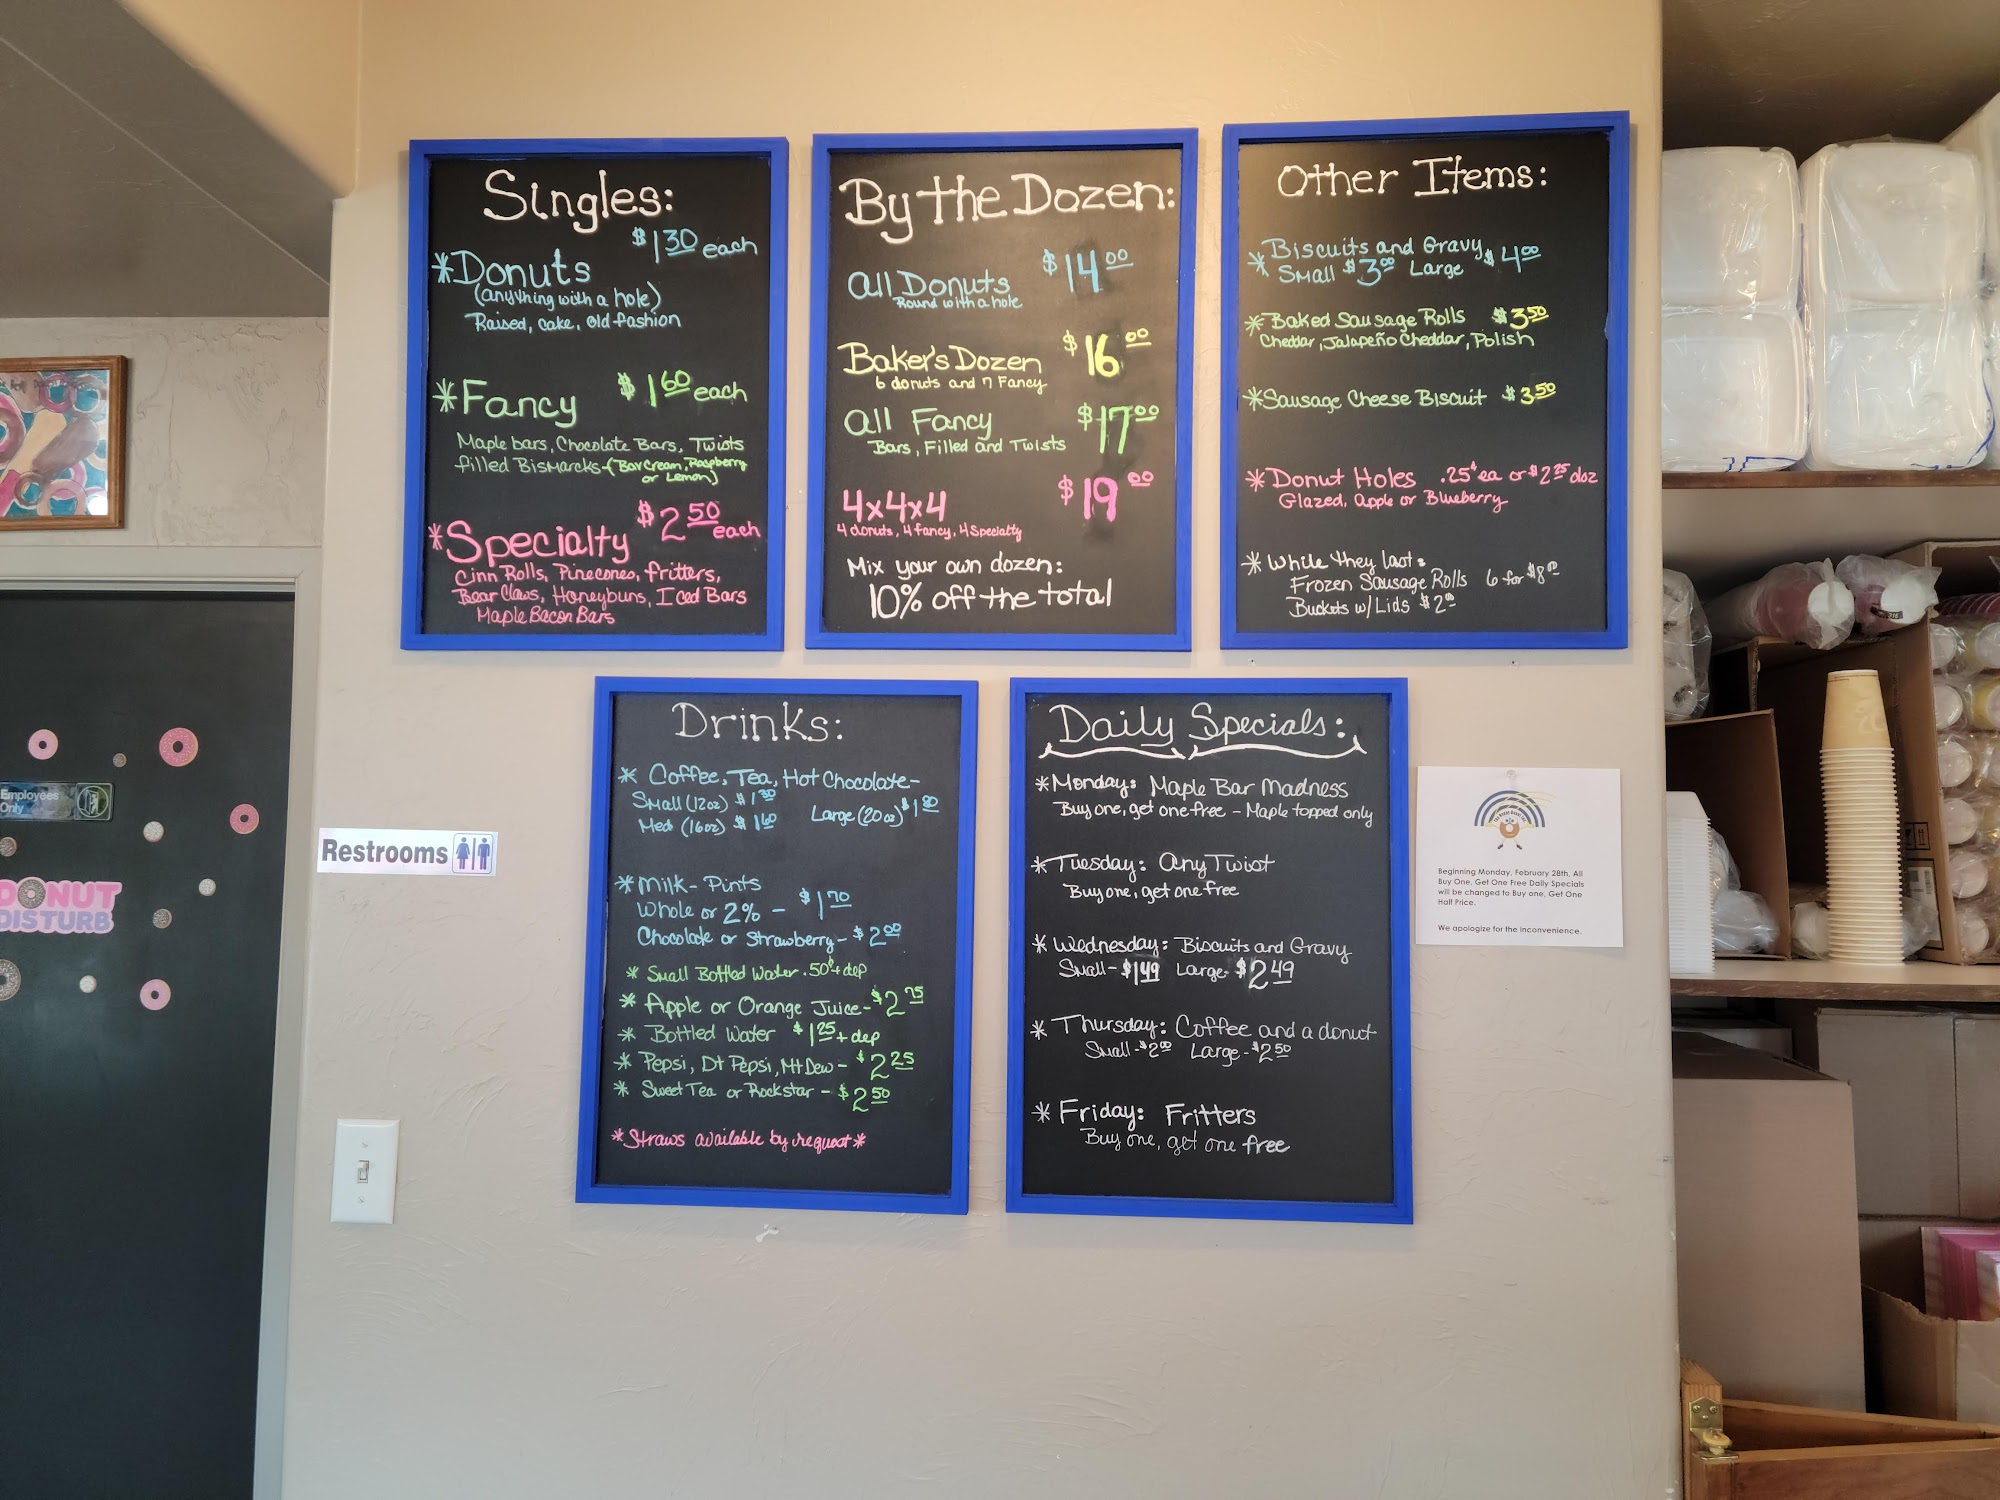 Singles:
*Donuts $1.30 each
(anything with a hole)
Raised, cake, old fashion
*Fancy $1.60 each
Maple bars, Chocolate Bars, Twists
filled Bismarcks-(BavCream, Raspberry
or Lemon)
*Specialty $2.50 each
Cinn Rolls, Pinecones, fritters,
Bear Claws, Honeybuns, Iced Bars
Maple Bacon Bars
By the Dozen:
All Donuts $14.00
Round with a hole
Baker's Dozen $16.00
6 donuts and 7 Fancy
All Fancy $17.00
Bars, Filled and Twists
4x4x4 $19.00
4 donuts, 4 fancy, 4 Specialty
Mix your own dozen:
10% off the total
Other Items:
*Biscuits and Gravy
Small $3.00 Large $4.00
*Baked Sausage Rolls $3.50
Cheddar, Jalapeño Cheddar, Polish
*Sausage Cheese Biscuit $3.50
*Donut Holes .25¢ ea or $2.25 doz
Glazed, Apple or Blueberry
*While they last:
Frozen Sausage Rolls 6 for $8.00
Buckets w/Lids $2.00
Drinks:
* Coffee, Tea, Hot Chocolate-
Small (12oz) $1.30 Large (20oz) $1.80
Med (16oz) $1.60
*Milk- Pints
Whole or 2% - $1.70
Chocolate or Strawberry- $2.00
* Small Bottled Water .50¢+dep
* Apple or Orange Juice-$2.75
* Bottled Water $1.25+dep
* Pepsi, Dt Pepsi, Mt Dew- $2.25
* Sweet Tea or Rockstar - $2.50
*Straws available by request*
Daily Specials:
*Monday: Maple Bar Madness
Buy one, get one free - Maple topped only
*Tuesday: Any Twist
Buy one, get one free
*Wednesday: Biscuits and Gravy
Small-$1.49 Large-$2.49
*Thursday: Coffee and a donut
Small-$2.00 Large-$2.50
*Friday: Fritters
Buy one, get one free
Beginning Monday, February 28th, All
Buy One, Get One Free Daily Specials
will be changed to Buy one, Get One
Half Price.
We apologize for the inconvenience.
Restrooms
Employees
Only
DONUT
DISTURB